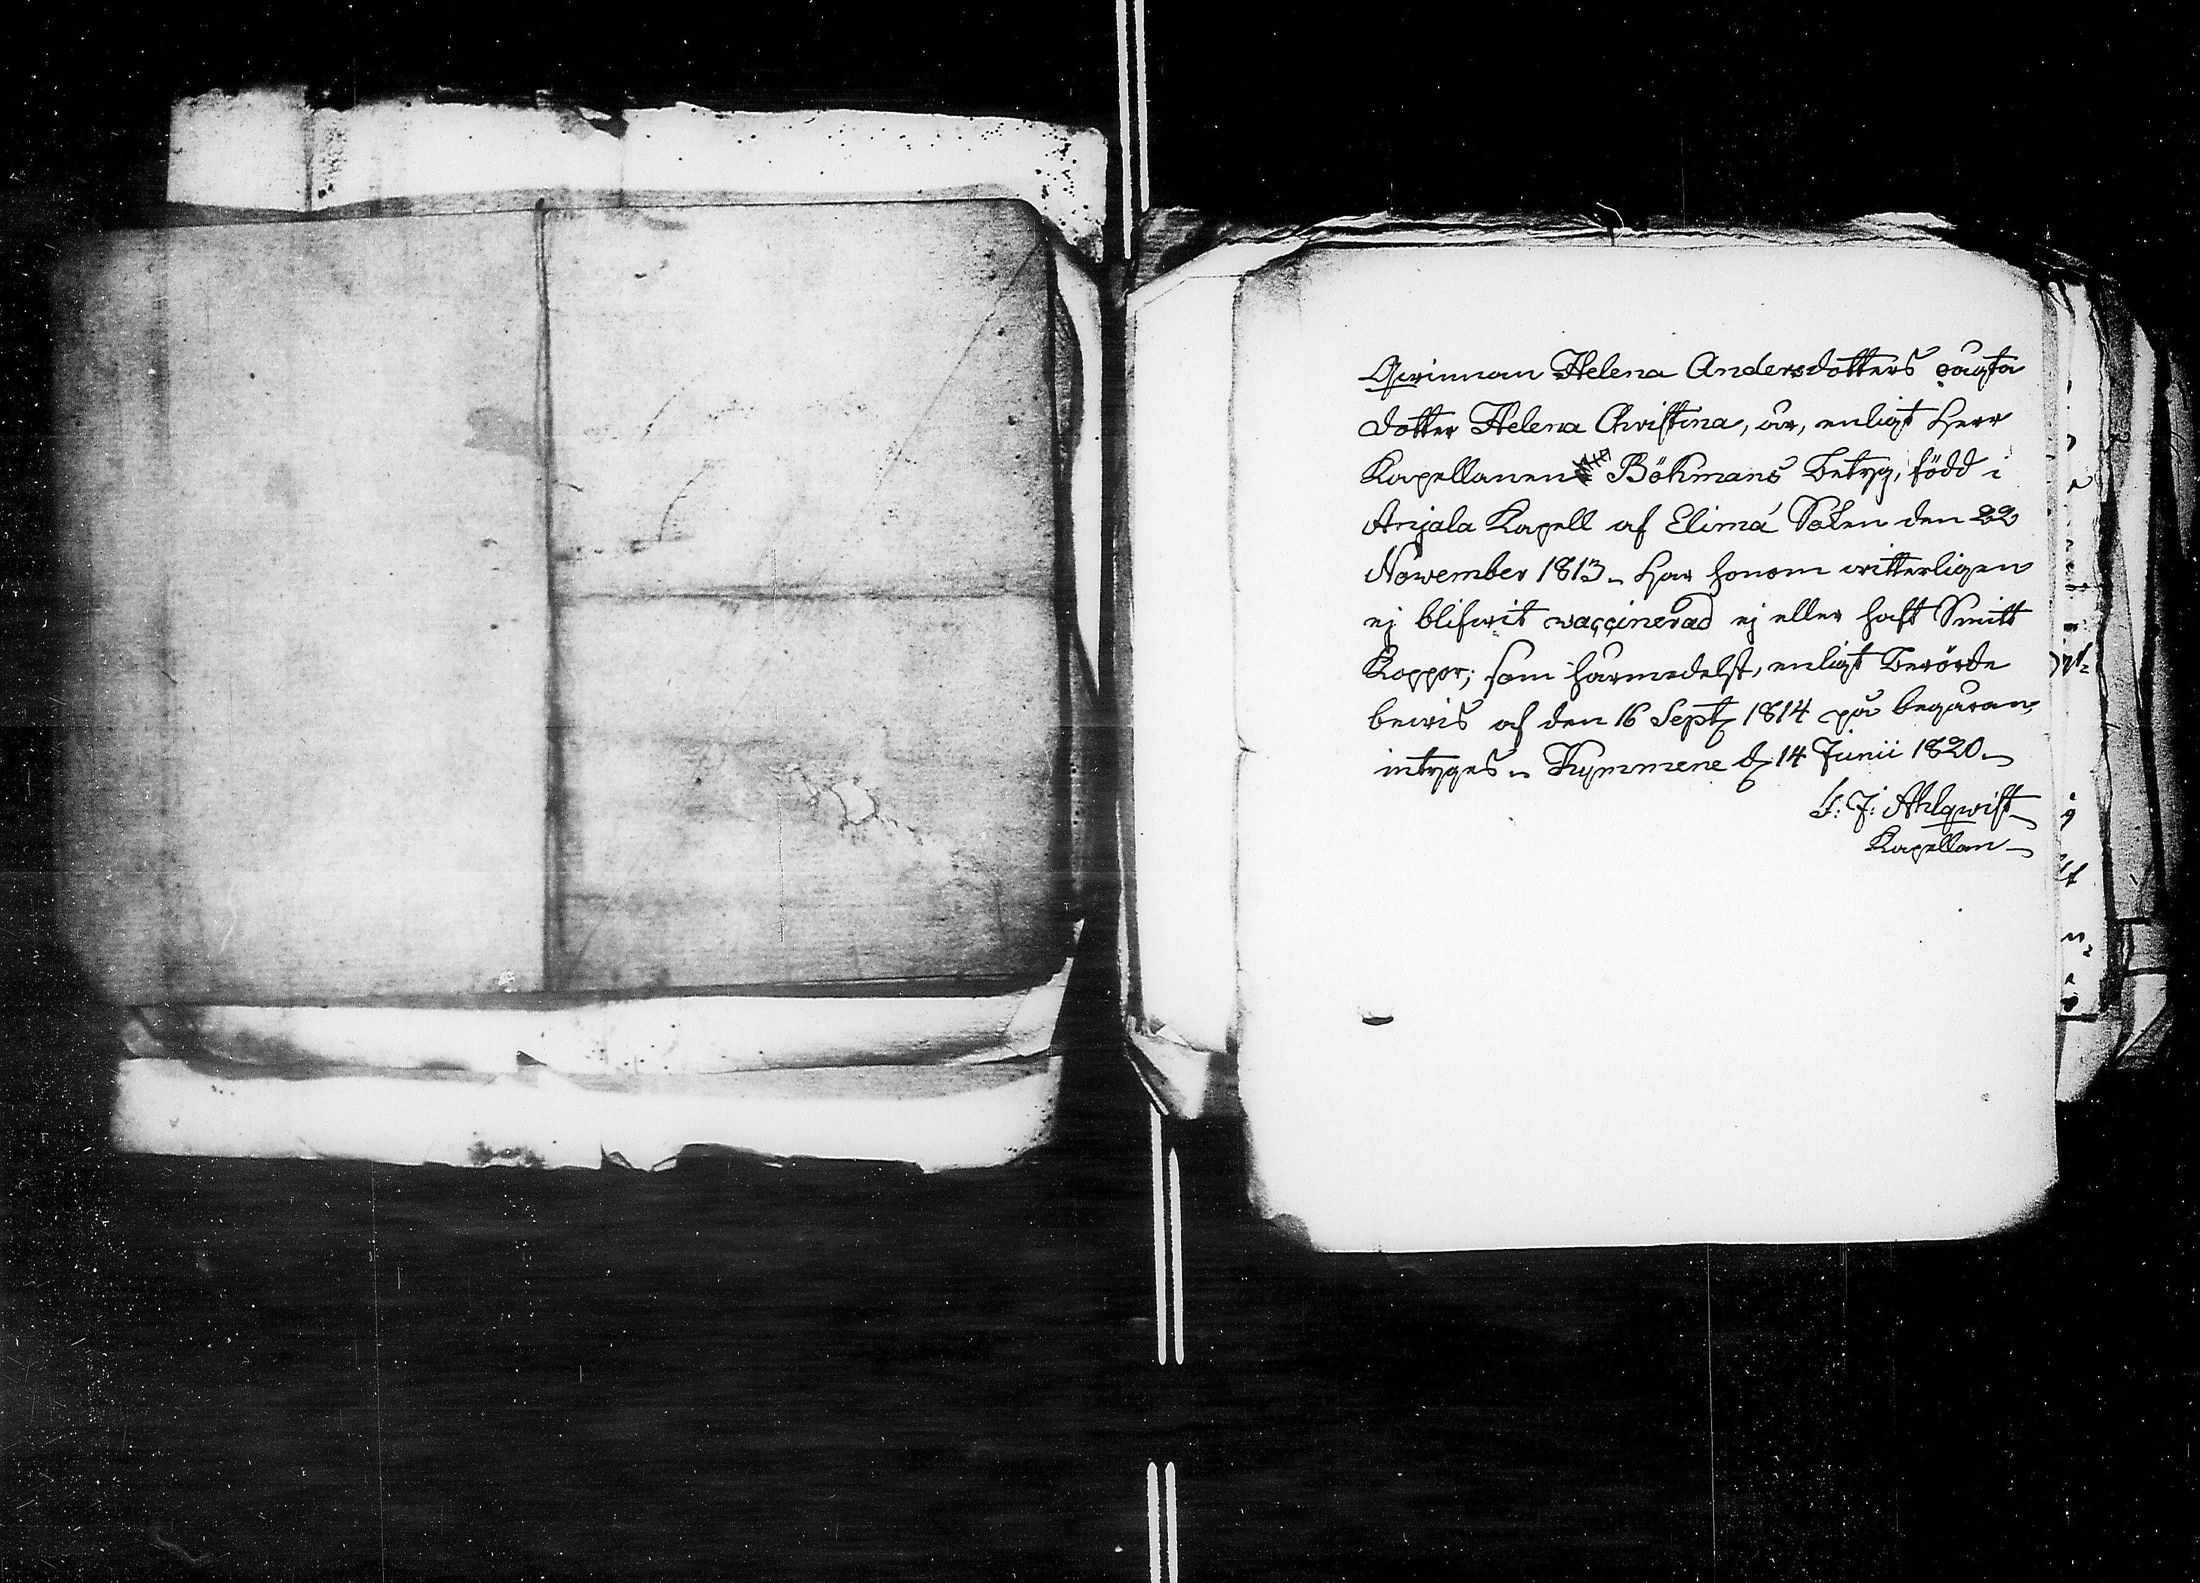 Qwinnan Helena Andersdotters oägta
dotter Helena Christina, är, enligt Herr
Kapellanens Böhmans betyg, född i
Anjala Kapell af Elimä Soken den 22
November 1813. Har honom witterligen
ej blifwit waccinerad ej eller haft Smitt
Koppor; som härmedelst, enligt berörde
bewis af den 16 Sept 1814 på begäran,
intyges. Kymmene d. 14 Junii 1820.
J: Ahlqwist
Kapellan